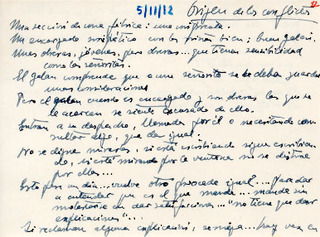 5/11/12 Origen de los conflictos
Una sección de una fábrica: uno cualquiera.
Un encargado simpático con las firmas bien; buen galán.
Unas obreras, jóvenes, pero duras... que tienen sensibilidad
como las señoritas.
El galán comprende que a una señorita se le deben guardar
unas consideraciones
Pero el galán cuando es encargado y son obreras las que se
le acercan se siente encargado de ello.
Entran a un despacho, llamadas por él o necesitando con-
sultar algo, que da igual.
No se digna mirarlas, si está escribiendo sigue escribien-
do, si está mirando por la ventana no se distrae
por ellas...
Esto pasa un día... vuelve otro y sucede igual... Para dar
a entender que es el que manda... manda sin
molestarse en dar satisfacciones... "no tiene que dar
explicaciones"...
Si reclaman alguna explicación, se niega... hay veces en